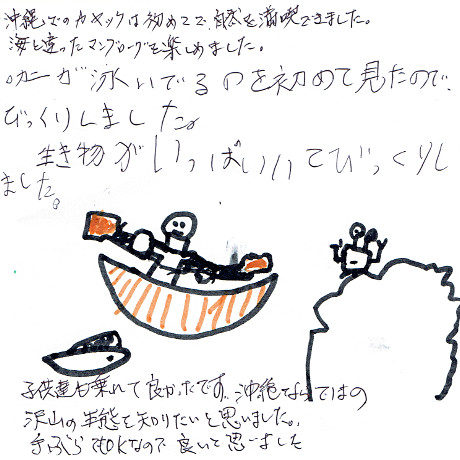 沖縄でのカヤックは初めてで、自然を満喫できました。
海と違ったマングローブを楽しめました。
カニが泳いでるのを初めて見たので、
びっくりしました。
生き物がいっぱいいてびっくりし
ました。
子供達も乗れて良かったです。沖縄ならではの
沢山の生態を知りたいと思いました。
手ぶらでOKなので良いと思いました